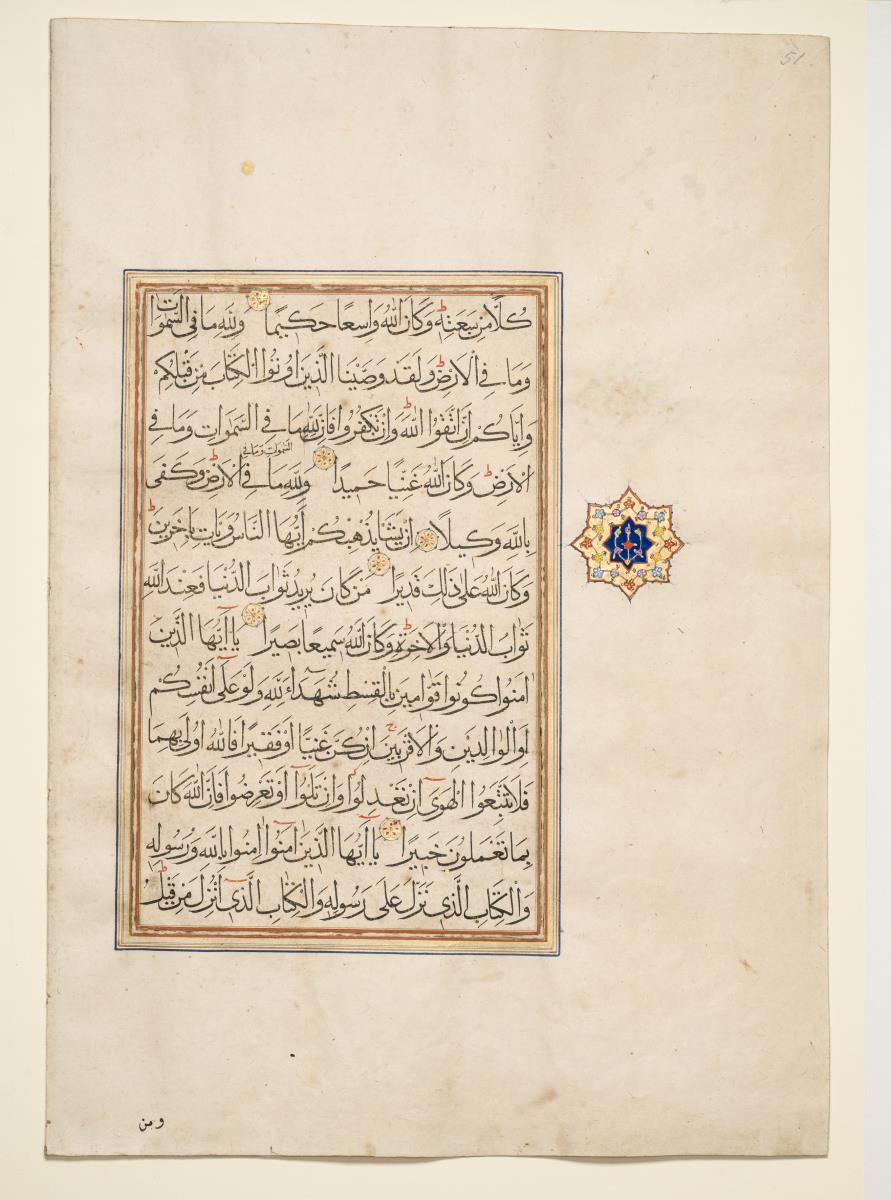 51
كُلًّا مِنْ سَعَتِهِ وَكَانَ اللهُ وَاسِعًا حَكِيمًا وَلِلّٰهِ مَا فِي السَّمٰوَاتِ
وَمَا فِي الْاَرْضِ وَلَقَدْ وَصَّيْنَا الَّذِينَ اُوتُوا الْكِتَابَ مِنْ قَبْلِكُمْ
وَاِيَّاكُمْ اَنِ اتَّقُوا اللهَ وَاِنْ تَكْفُرُوا فَاِنَّ لِلّٰهِ مَا فِي السَّمَوَاتِ وَمَا فِي
السَّمَوَاتِ وَمَا فِي
الْاَرْضِ وَكَانَ اللهُ غَنِيًّا حَمِيدًا وَلِلّٰهِ مَا فِي الْاَرْضِ وَكَفَى
بِاللهِ وَكِيلًا اِنْ يَشَأْ يُذْهِبْكُمْ اَيُّهَا النَّاسُ وَيَاْتِ بِاٰخَرِينَ
وَكَانَ اللهُ عَلَى ذَلِكَ قَدِيرًا مَنْ كَانَ يُرِيدُ ثَوَابَ الدُّنْيَا فَعِنْدَ اللهِ
ثَوَابُ الدُّنْيَا وَالْاٰخِرَةِ وَكَانَ اللهُ سَمِيعًا بَصِيرًا يَا اَيُّهَا الَّذِينَ
اٰمَنُوا كُونُوا قَوَّامِينَ بِالْقِسْطِ شُهَدَاءَ لِلّٰهِ وَلَوْ عَلَى اَنْفُسِكُمْ
اَوِ الْوَالِدَيْنِ وَالْاَقْرَبِينَ اِنْ يَكُنْ غَنِيًّا اَوْ فَقِيرًا فَاللهُ اَوْلَى بِهِمَا
فَلَا تَتَّبِعُوا الْهَوَى اَنْ تَعْدِلُوا وَاِنْ تَلْوُوا اَوْ تُعْرِضُوا فَاِنَّ اللهَ كَانَ
بِمَا تَعْمَلُونَ خَبِيرًا يَا اَيُّهَا الَّذِينَ اٰمَنُوا اٰمِنُوا بِاللهِ وَرَسُولِهِ
وَالْكِتَابِ الَّذِي نَزَّلَ عَلَى رَسُولِهِ وَالْكِتَابِ الَّذِي اَنْزَلَ مِنْ قَبْلُ
ومن